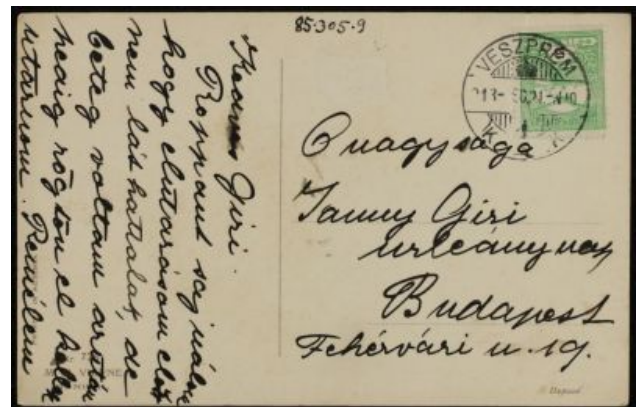 85.305.9
Kedves Giri.
Roppant sajnálom
hogy elutazásom előtt
nem láthattalak, de
beteg voltam aztán
pedig rögtön el kellett
utaznom. Remélem
VESZPRÉM
Őnagysága
Janny Giri
urleánynak
Budapest
Fehérvári u. 19.